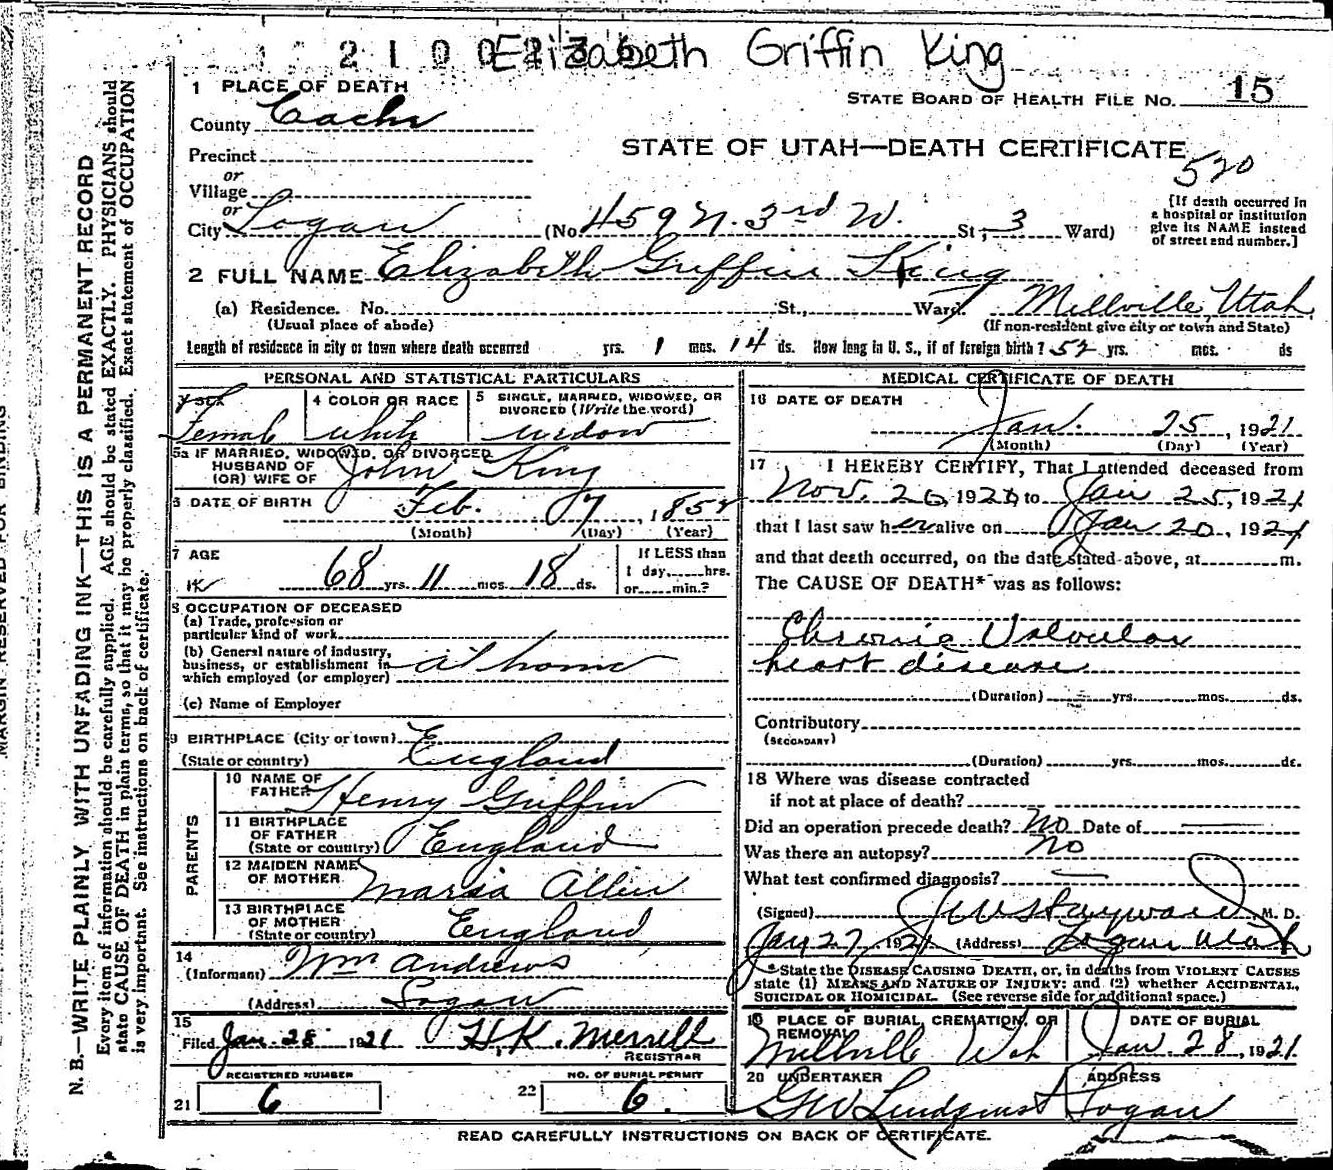 2 1 0 0 2 3 6
Elizabeth Griffin King
STATE BOARD OF HEALTH FILE NO. 15
1 PLACE OF DEATH
County Cache
STATE OF UTAH—DEATH CERTIFICATE
520
Precinct
or
Village
or
City Logan (No. 459 N. 3rd W. St; 3 Ward)
[If death occurred in
a hospital or institution
give its NAME instead
of street and number.]
2 FULL NAME Elizabeth Griffin King
(a) Residence. No. St., Ward. Millville, Utah
(Usual place of abode) (If non-resident give city or town and State)
Length of residence in city or town where death occurred yrs. 1 mos. 14 ds. How long in U. S., if of foreign birth? 52 yrs. mos. ds
PERSONAL AND STATISTICAL PARTICULARS
3 SEX 4 COLOR OR RACE 5 SINGLE, MARRIED, WIDOWED, OR
DIVORCED (Write the word)
Female white widow
5a IF MARRIED, WIDOWED, OR DIVORCED
HUSBAND OF
(OR) WIFE OF John King
6 DATE OF BIRTH Feb. 7, 1852
(Month) (Day) (Year)
7 AGE
68 yrs. 11 mos. 18 ds.
If LESS than
1 day, hrs.
or min.?
8 OCCUPATION OF DECEASED
(a) Trade, profession or
particular kind of work
(b) General nature of industry,
business, or establishment in
which employed (or employer) at home
(c) Name of Employer
9 BIRTHPLACE (City or town)
(State or country) England
PARENTS
10 NAME OF
FATHER Henry Griffin
11 BIRTHPLACE
OF FATHER
(State or country) England
12 MAIDEN NAME
OF MOTHER Maria Allen
13 BIRTHPLACE
OF MOTHER
(State or country) England
14
(Informant) Wm Andrews
(Address) Logan
15
Filed Jan. 28 1921 H. K. Merrell
REGISTRAR
REGISTERED NUMBER NO. OF BURIAL PERMIT
21 6 22 6.
MEDICAL CERTIFICATE OF DEATH
16 DATE OF DEATH
Jan. 25, 1921
(Month) (Day) (Year)
17 I HEREBY CERTIFY, That I attended deceased from
Nov. 26, 1920, to Jan 25, 1921
that I last saw her alive on Jan 20, 1921
and that death occurred, on the date stated above, at m.
The CAUSE OF DEATH* was as follows:
Chronic Valvular
heart disease
(Duration) yrs. mos. ds.
Contributory
(SECONDARY)
(Duration) yrs. mos. ds.
18 Where was disease contracted
if not at place of death?
Did an operation precede death? No Date of
Was there an autopsy? No
What test confirmed diagnosis?
(Signed) J W Hayward, M. D.
Jan 27, 1921 (Address) Logan Utah
*State the DISEASE CAUSING DEATH, or, in deaths from VIOLENT CAUSES
state (1) MEANS AND NATURE OF INJURY; and (2) whether ACCIDENTAL,
SUICIDAL OR HOMICIDAL. (See reverse side for additional space.)
19 PLACE OF BURIAL, CREMATION, OR
REMOVAL DATE OF BURIAL
Millville Utah Jan. 28, 1921
20 UNDERTAKER ADDRESS
G W Lindquist Logan
READ CAREFULLY INSTRUCTIONS ON BACK OF CERTIFICATE.
MARGIN RESERVED FOR BINDING
N. B.—WRITE PLAINLY WITH UNFADING INK—THIS IS A PERMANENT RECORD
Every item of information should be carefully supplied. AGE should be stated EXACTLY. PHYSICIANS should
state CAUSE OF DEATH in plain terms, so that it may be properly classified. Exact statement of OCCUPATION
is very important. See instructions on back of certificate.